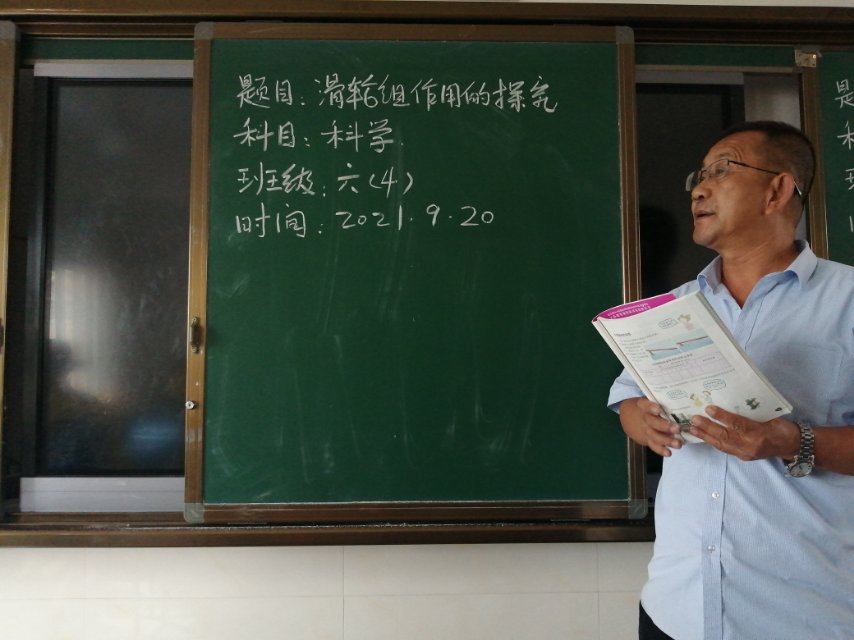 题目：滑轮组作用的探究
科目：科学.
班级：六（4）
时间：2021.9.20
是